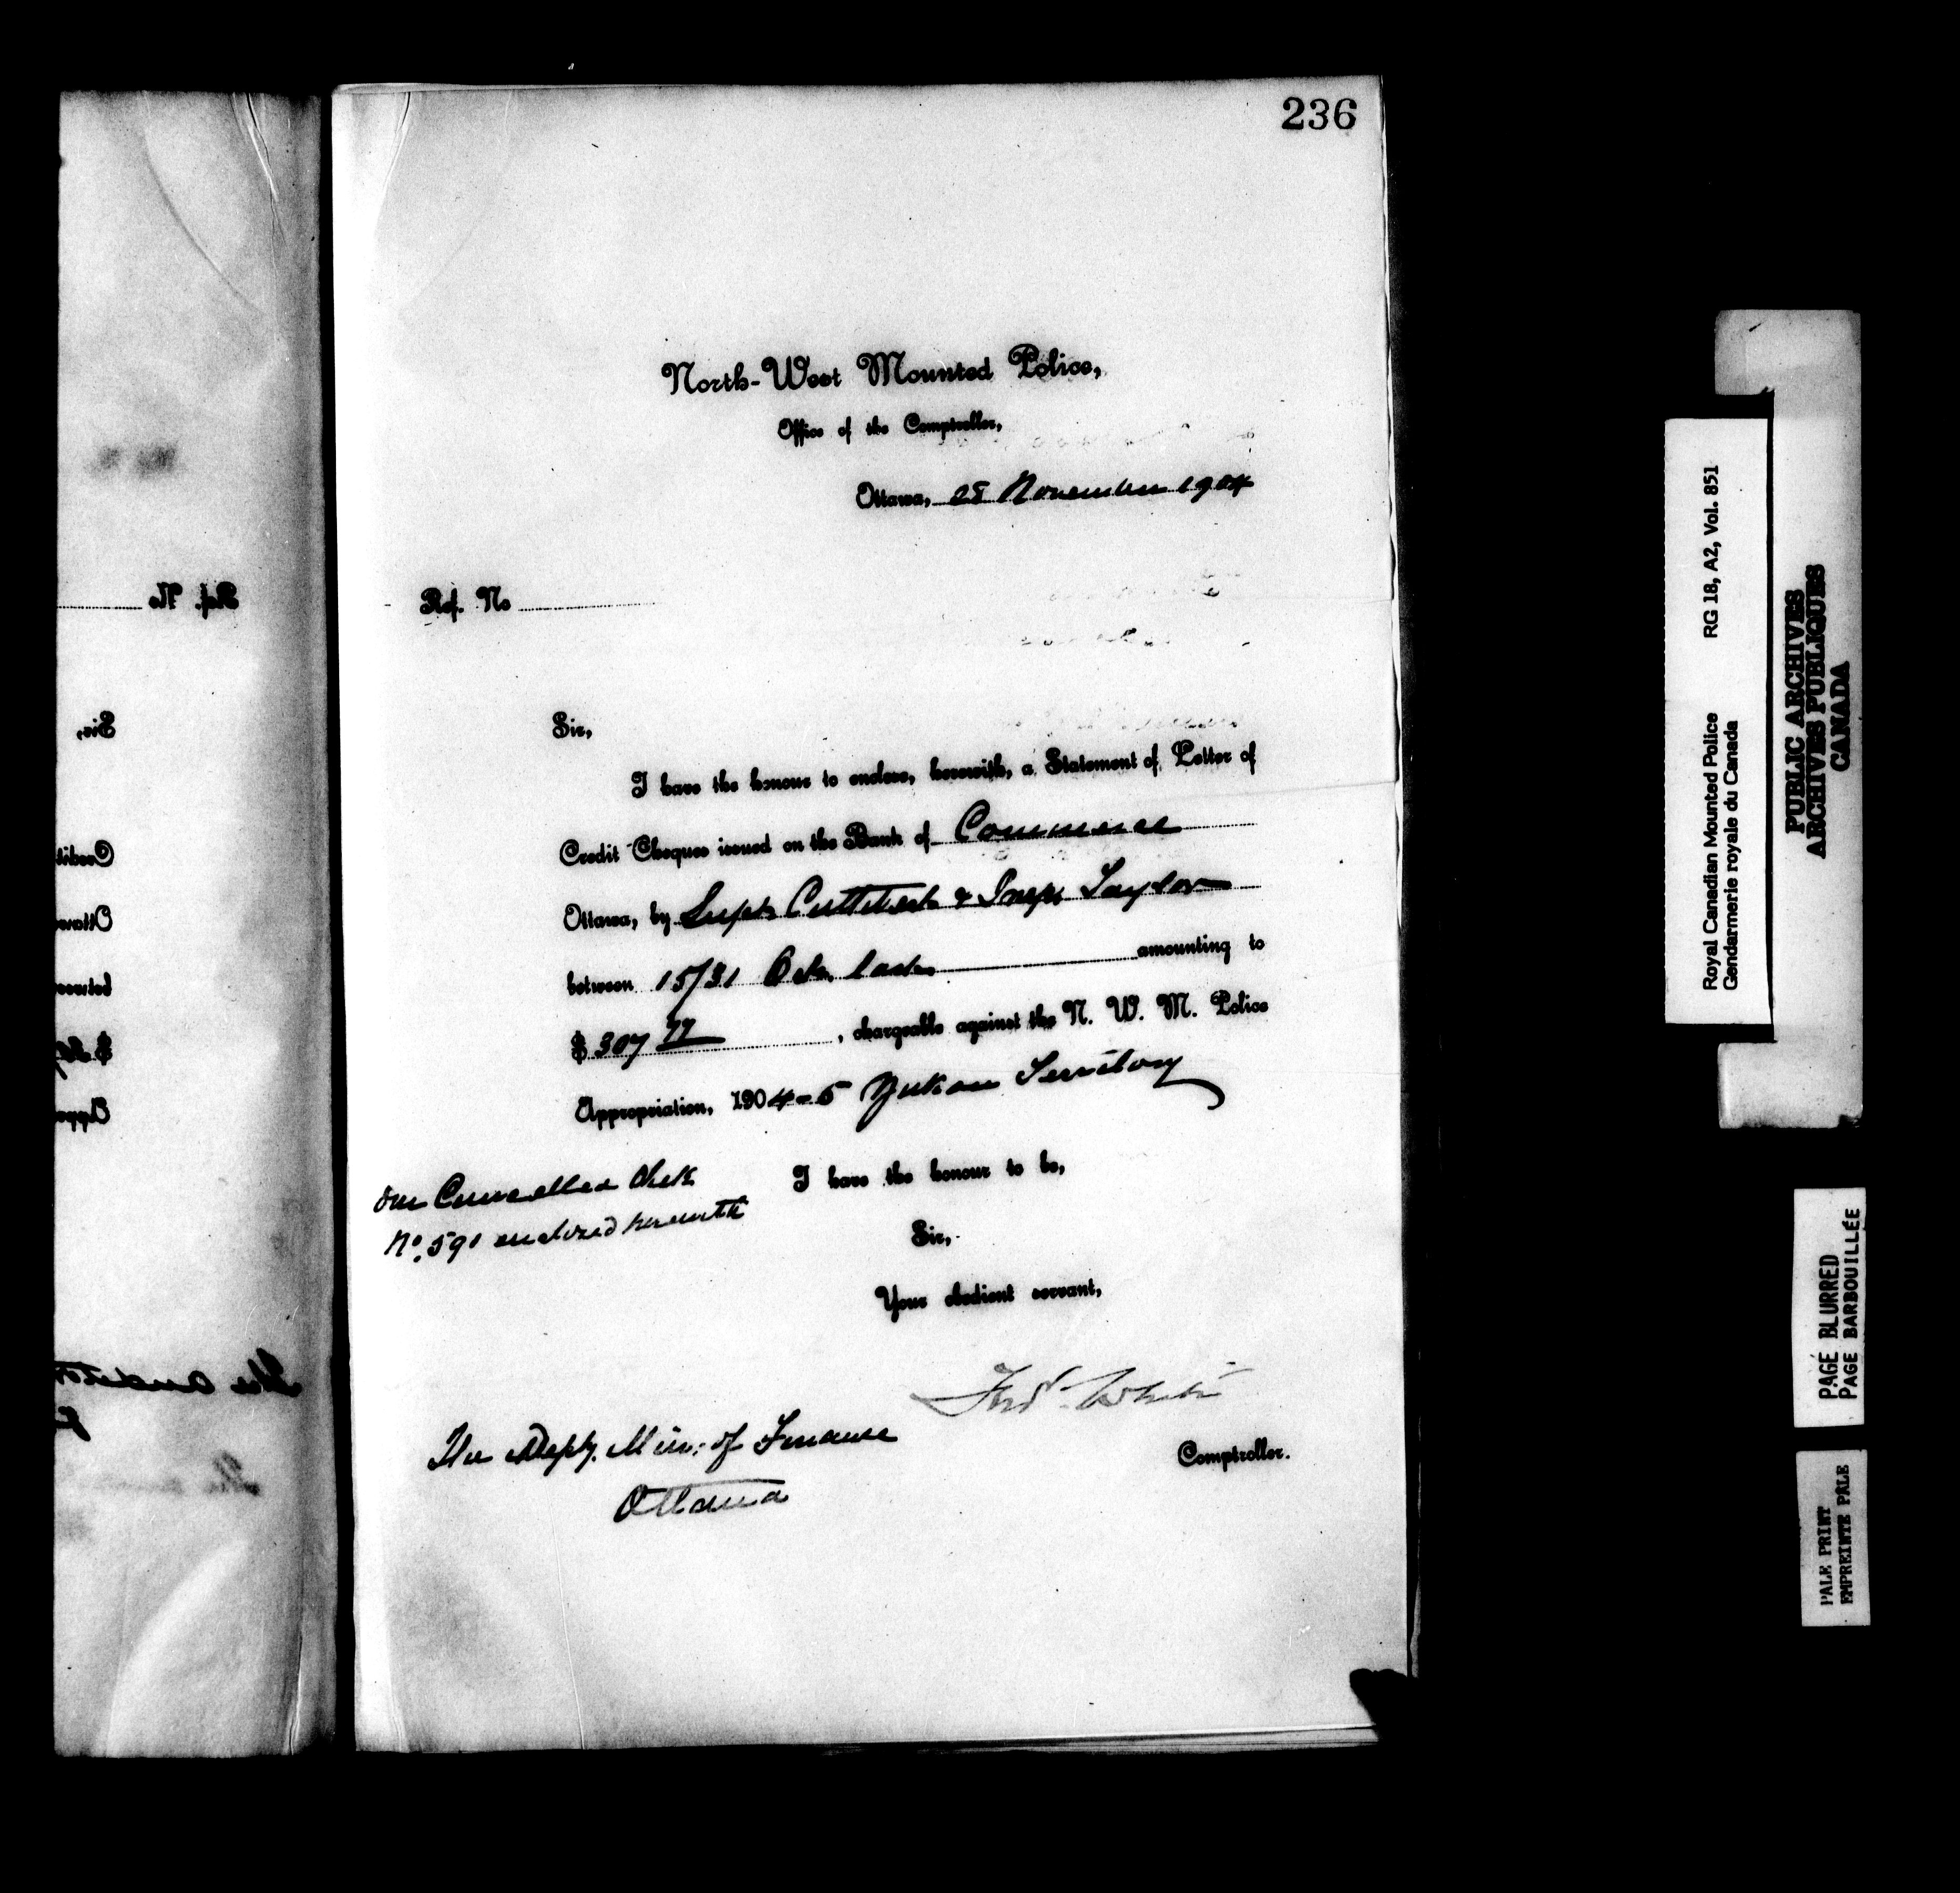 236
North-West Mounted Police,
Office of the Comptroller,
Ottawa, 28 November 1904
Ref. No
Sir,
I have the honour to enclose, herewith, a Statement of Letter of
Credit Cheques issued on the Bank of Commerce
Ottawa, by Supt. Cuthbert & Insp. Taylor
between 15/31 Oct. last. amounting to
$ 307 77, chargeable against the N. W. M. Police
Appropriation, 1904-5 Yukon Territory
I have the honour to be,
one Cancelled Chek
No. 591 enclosed herewith
Sir,
Your obedient servant,
Fred White
Comptroller.
The Depty. Min: of Finance
Ottawa
Royal Canadian Mounted Police RG 18, A2, Vol. 851
Gendarmerie royale du Canada
PUBLIC ARCHIVES
ARCHIVES PUBLIQUES
CANADA
PAGE BLURRED
PAGE BARBOUILLÉE
PALE PRINT
EMPREINTE PÂLE